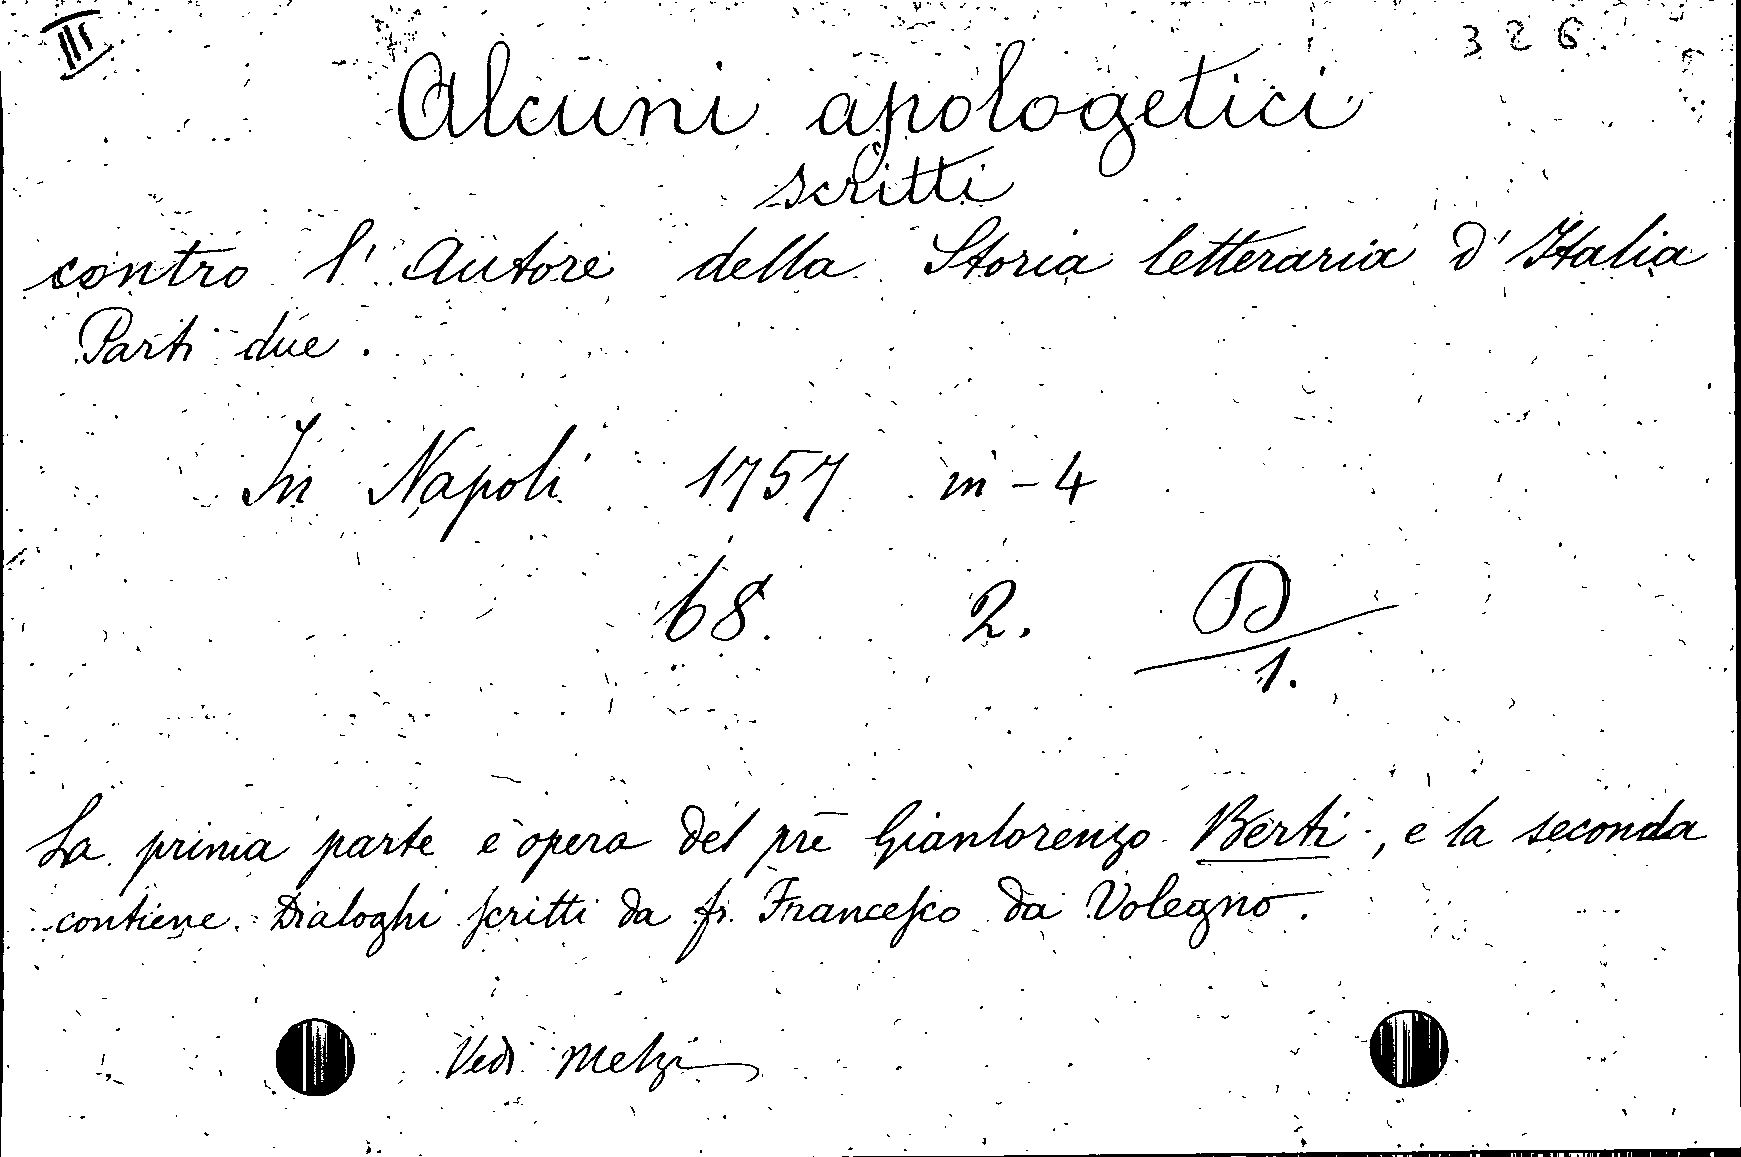 III 326
Alcuni apologetici
scritti
contro l'Autore della Storia letteraria d'Italia
Parti due.
In Napoli 1757 in-4
68. 2. D
1.
La prima parte è opera del pre Gianlorenzo Berti, e la seconda
contiene Dialoghi scritti da fr. Francesco da Volegno.
Vedi Melzi